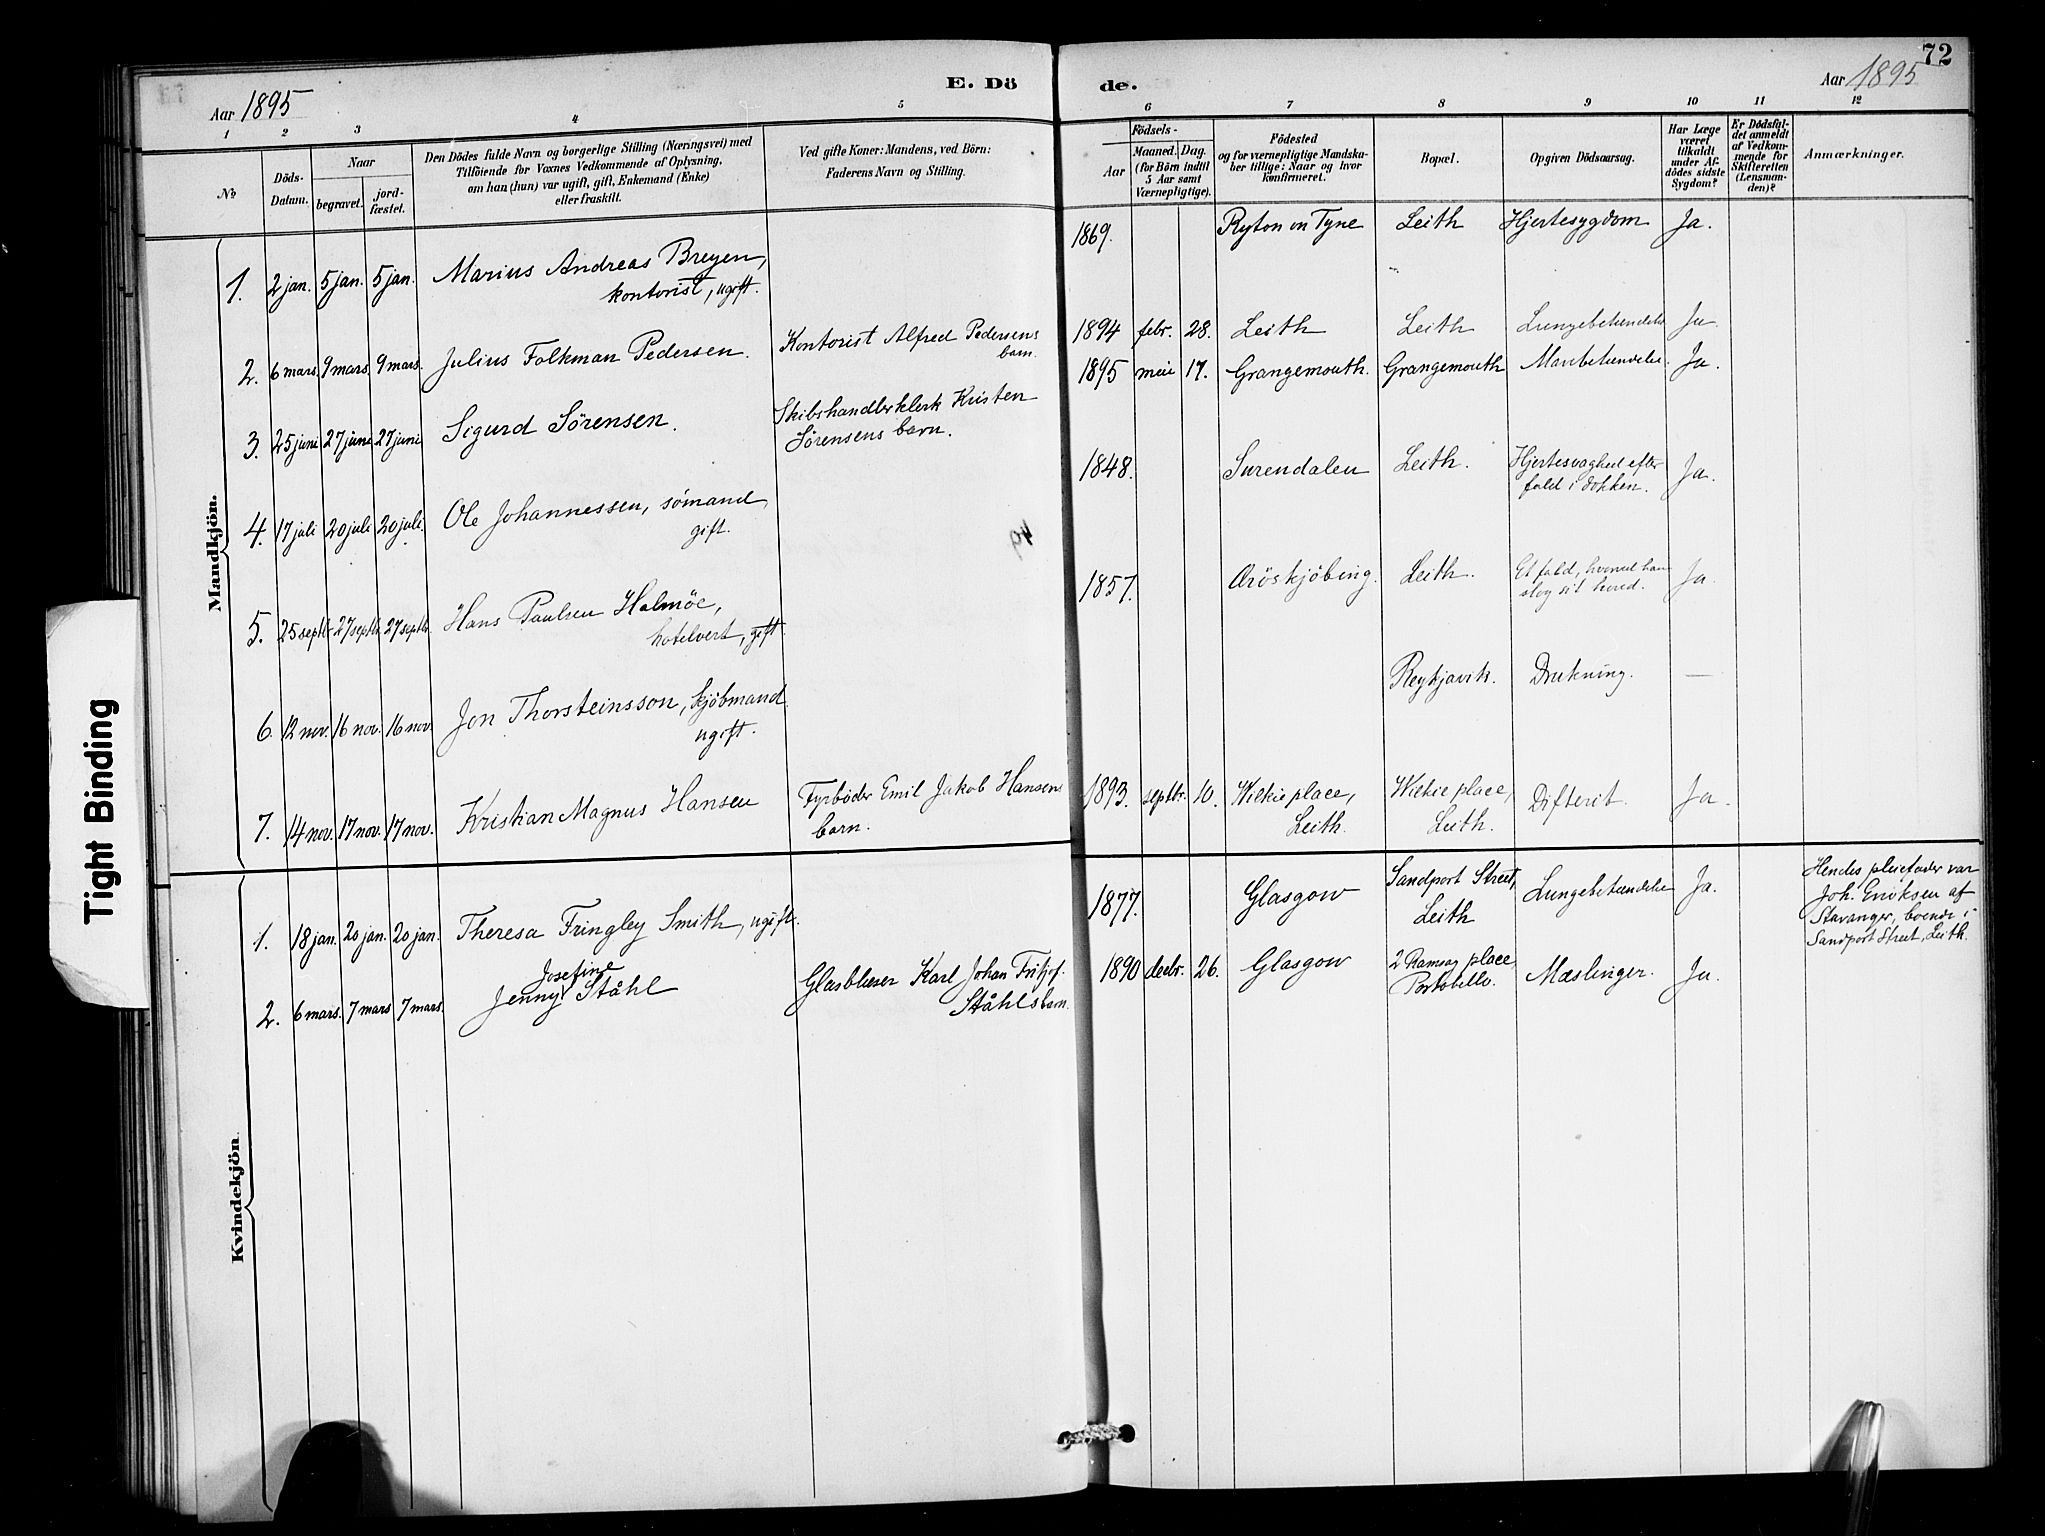 72
E. Dö de.
Aar 1895
Aar 1895
1 2 3 4 5 6 7 8 9 10 11 12
No.
Döds-Datum.
Naar
begravet.
jord-fæstet.
Den Dödes fulde Navn og borgerlige Stilling (Næringsvei) med
Tilföiende for Voxnes Vedkommende af Oplysning,
om han (hun) var ugift, gift, Enkemand (Enke)
eller fraskilt.
Ved gifte Koner: Mandens, ved Börn:
Faderens Navn og Stilling.
Födsels-
Aar
Maaned. Dag.
(for Börn indtil
5 Aar samt
Værnepligtige).
Födested
og for værnepligtige Mandska-
ber tillige: Naar og hvor
konfirmeret.
Bopæl.
Opgiven Dödsaarsag.
Har Læge
været
tilkaldt
under Af-
dödes sidste
Sygdom?
Er Dödsfal-
det anmeldt
af Vedkom-
mende for
Skifteretten
(Lensman-
den)?
Anmærkninger.
Mandkjön.
1. 2 jan. 5 jan. 5 jan. Marius Andreas Breyen, 1869. Ryton on Tyne Leith Hjertesygdom Ja.
kontorist, ugift.
2. 6 mars. 9 mars. 9 mars. Julius Folkman Pedersen. Kontorist Alfred Pedersens 1894 febr. 28. Leith Leith Lungebetændelse Ja.
barn.
3. 25 juni 27 juni 27 juni Sigurd Sörensen. Skibshandlerklerk Kristen 1895 mai 17. Grangemouth. Grangemouth Mavebetændelse. Ja.
Sörensens barn.
4. 17 juli 20 juli 20 juli. Ole Johannessen, sömand, 1848. Surendalen Leith. Hjertesvaghed efter Ja.
gift. fald i dokken.
5. 25 septbr. 27 septbr. 27 septbr. Hans Paulsen Halmöe, 1857. Æröskjöbing. Leith. Et fald, hvorved han Ja.
hotelvert, gift. slog sit hoved.
6. 12 nov. 16 nov. 16 nov. Jon Thorsteinsson, kjöbmand Reykjavik. Drukning. —
ugift.
7. 14 nov. 17 nov. 17 nov. Kristian Magnus Hansen Fyrböder Emil Jakob Hansens 1893. septbr. 10. Wilkie place, Wilkie place, Difterit. Ja.
barn. Leith. Leith.
Kvindekjön.
1. 18 jan. 20 jan. 20 jan. Theresa Fringley Smith, ugift. 1877. Glasgow Sandport Street, Lungebetændelse Ja. Hendes pleiefader var
Leith Joh. Eriksen af
Stavanger, boende i
Sandport Street, Leith.
2. 6 mars. 7 mars 7 mars. Jenny Josefine Ståhl Glasblæser Karl Johan Fritjof 1890 decbr. 26. Glasgow 2 Ramsay place Mæslinger. Ja.
Ståhls barn. Portobello.
Tight Binding